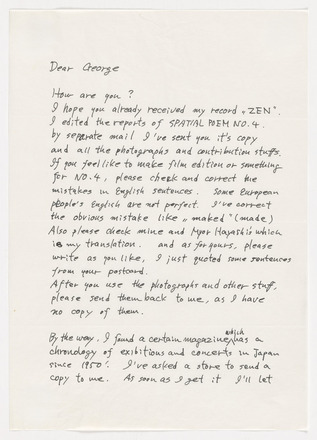 Dear George
How are you?
I hope you already received my record „ZEN".
I edited the reports of SPATIAL POEM NO.4.
by seperate mail I've sent you it's copy
and all the photographs and contribution stuffs.
If you feel like to make film edition or something
for NO.4, please check and correct the
mistakes in English sentences. Some European
people's English are not perfect. I've correct
the obvious mistake like „maked" (made)
Also please check mine and Mr. Hayashi's which
is my translation. and as for yours, please
write as you like, I just quoted some sentences
from your postcard.
After you use the photographs and other stuff,
please send them back to me, as I have
no copy of them.
By the way, I found a certain magazine which has a
chronology of exibitions and concerts in Japan
since 1950'. I've asked a store to send a
copy to me. As soon as I get it I'll let